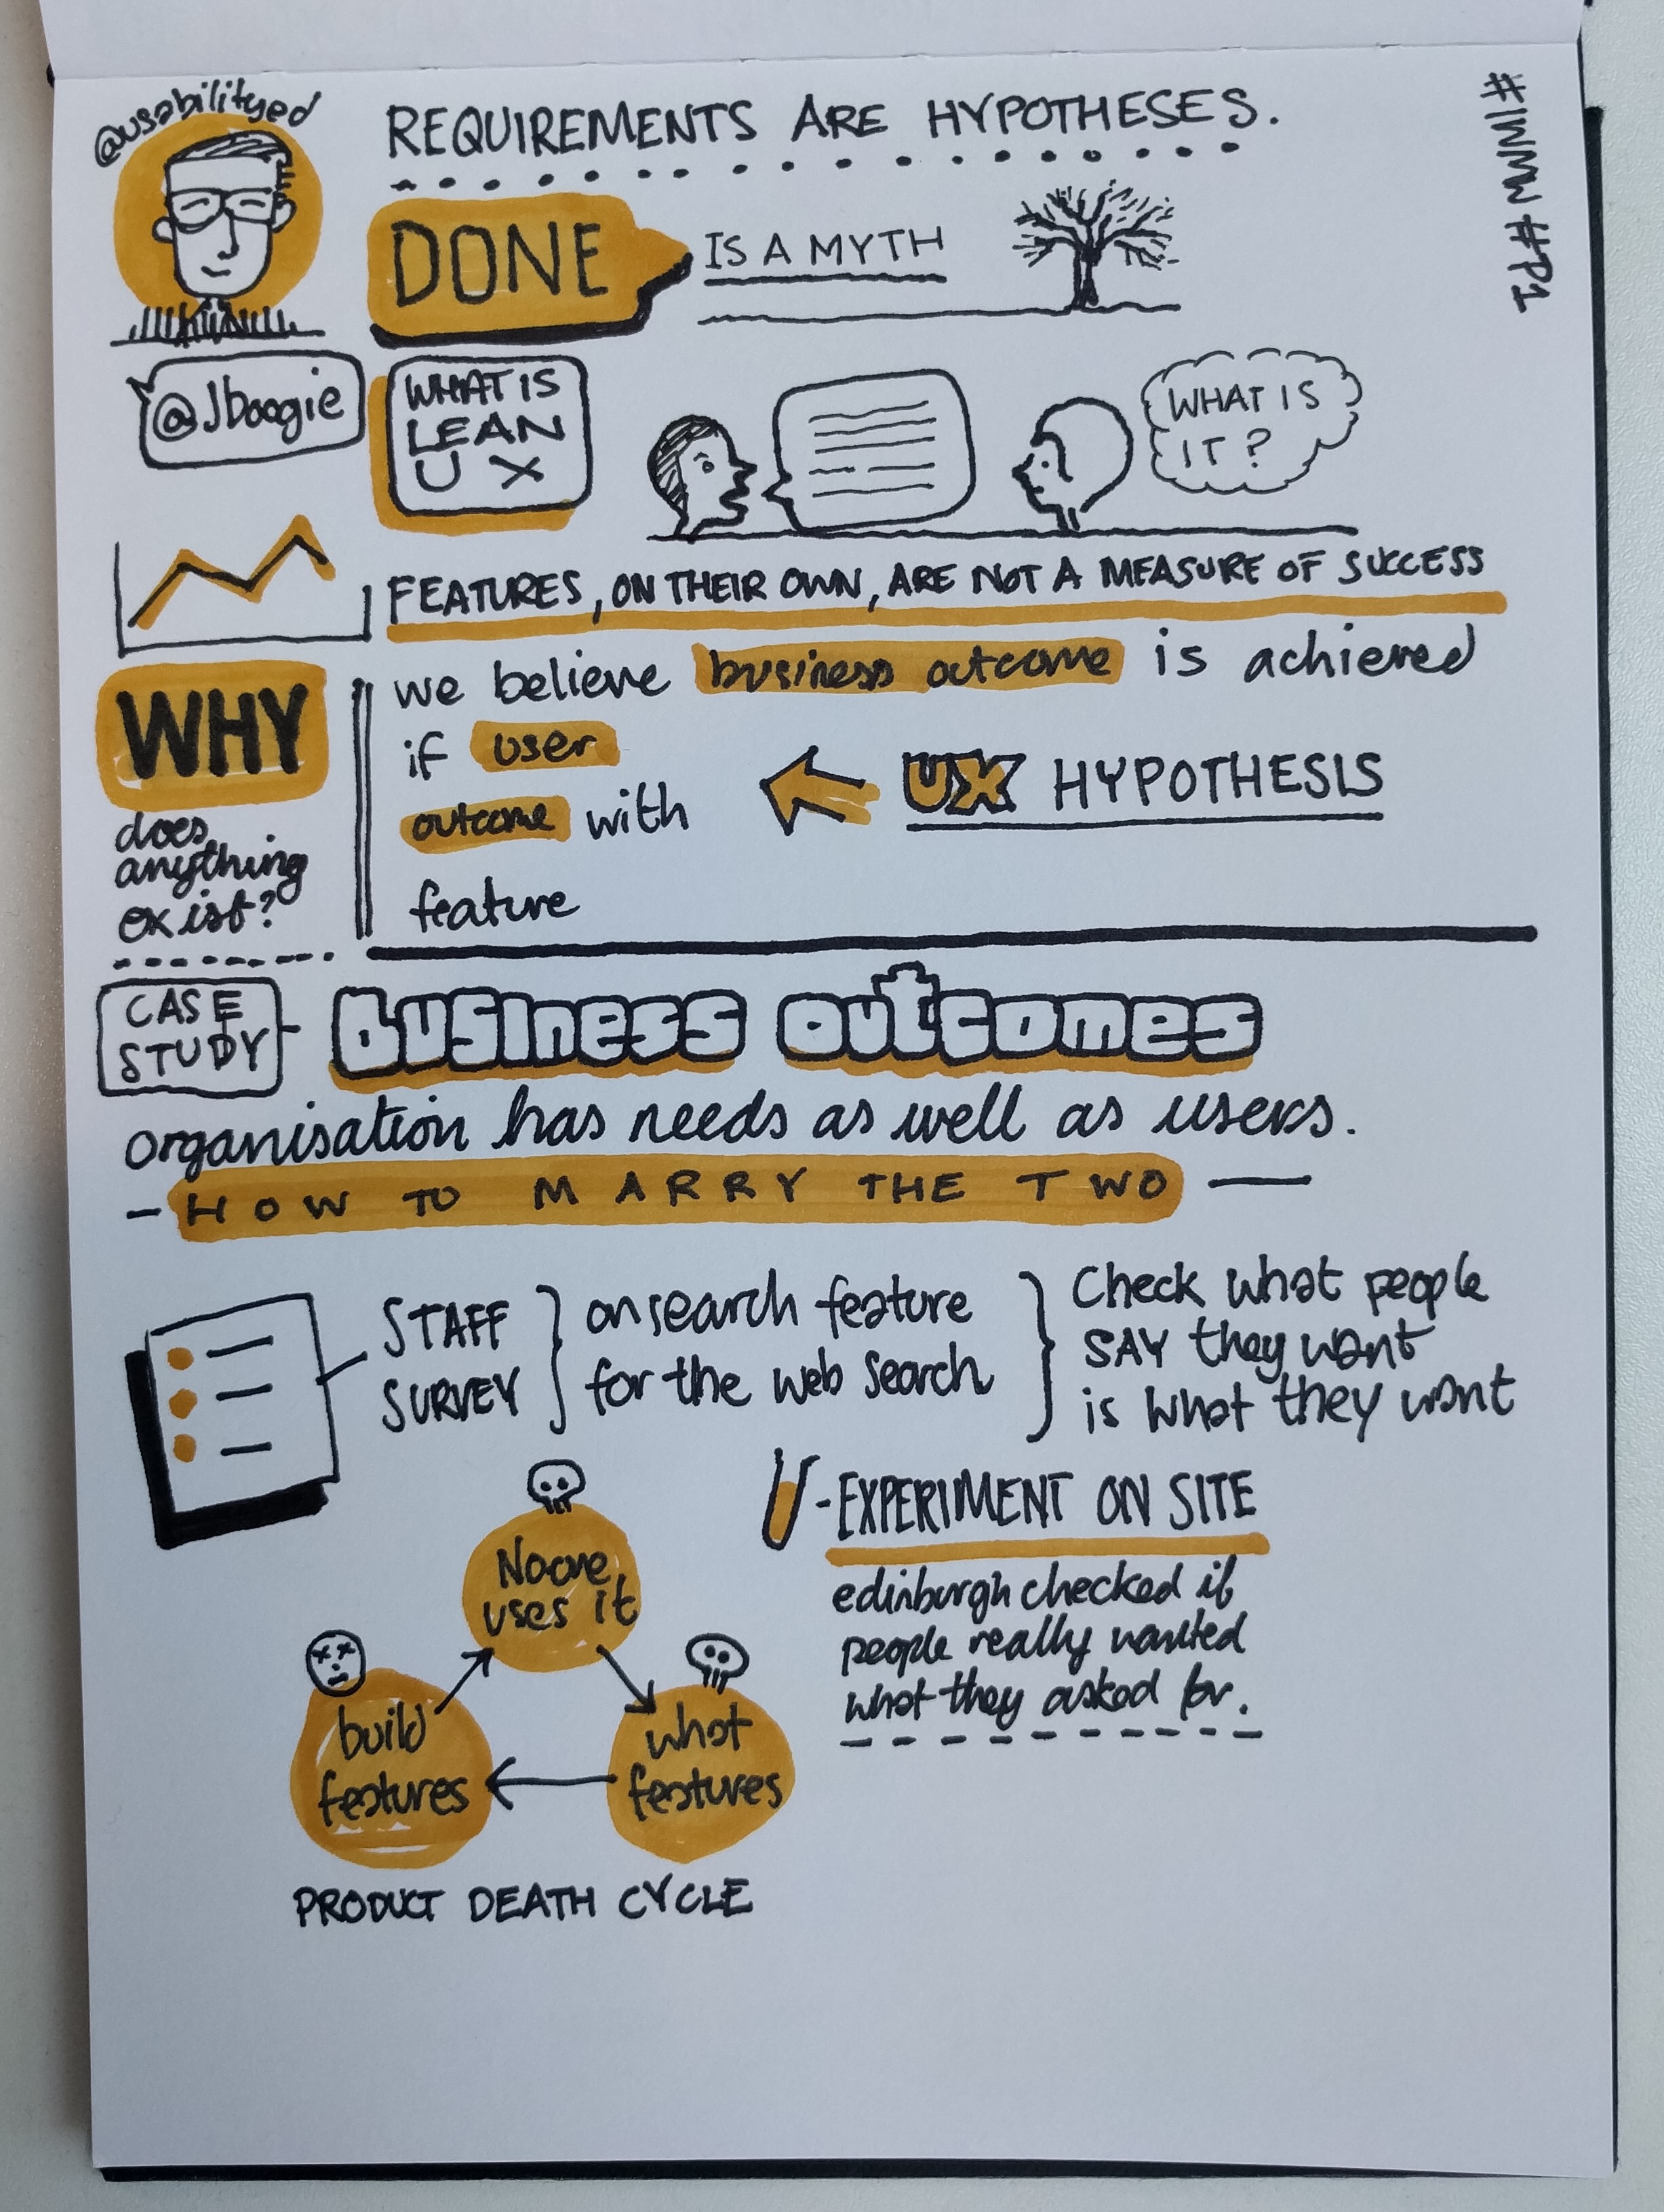 @usabilityed
REQUIREMENTS ARE HYPOTHESES.
#IWMW #P1
DONE IS A MYTH
@Jboogie
WHAT IS
LEAN
UX
WHAT IS
IT?
FEATURES, ON THEIR OWN, ARE NOT A MEASURE OF SUCCESS
WHY
does
anything
exist?
we believe business outcome is achieved
if user
outcome with
feature
UX HYPOTHESIS
CASE
STUDY
Business outcomes
organisation has needs as well as users.
- HOW TO MARRY THE TWO -
STAFF
SURVEY
on search feature
for the web search
Check what people
SAY they want
is what they want
- EXPERIMENT ON SITE
edinburgh checked if
people really wanted
what they asked for.
No one
uses it
build
features
what
features
PRODUCT DEATH CYCLE